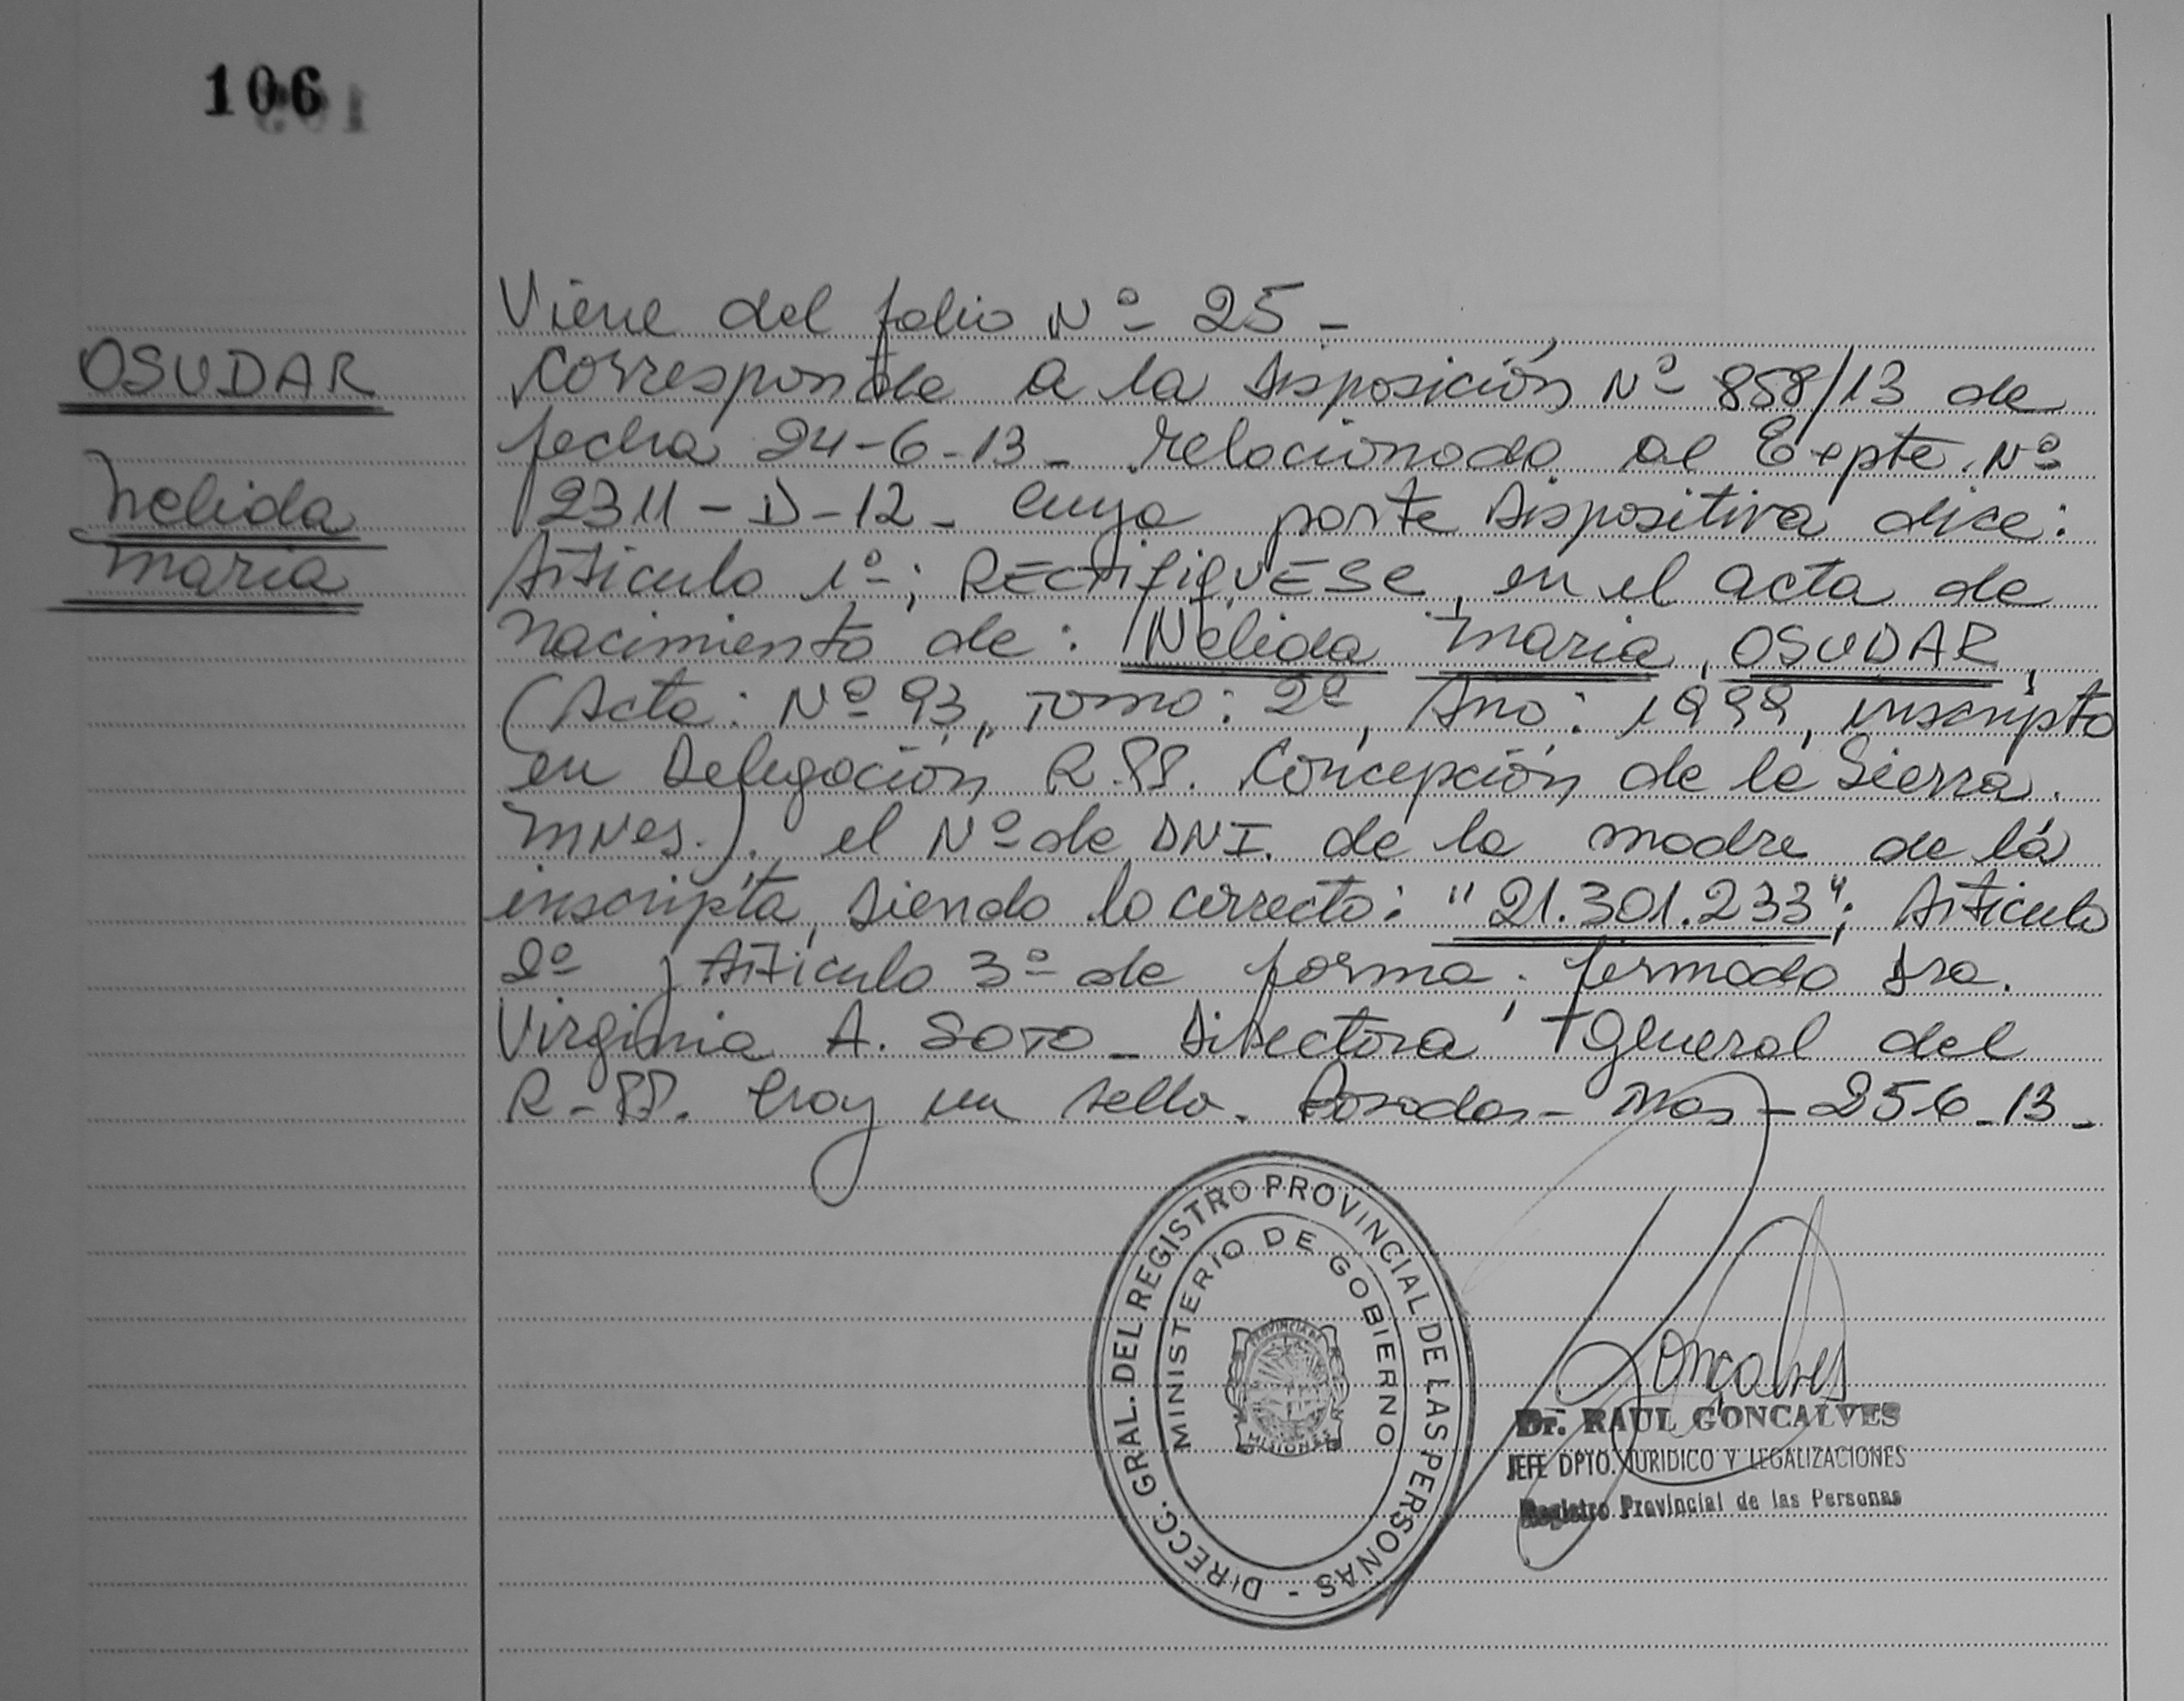 106
OSUDAR
Nelida
Maria
Viene del folio Nº 25 -
Corresponde a la Disposición Nº 858/13 de
fecha 24-6-13 - relacionado al Expte. Nº
2311 - D - 12 - cuya parte Dispositiva dice:
Artículo 1º; RECTIFIQUESE, en el acta de
nacimiento de: Nelida Maria, OSUDAR,
(Acta: Nº 93, Tomo: 2º, Año: 1999, inscripto
en Delegación R.PP. Concepción de la Sierra.
Mnes.). el Nº de DNI. de la madre de la
inscripta, siendo lo correcto: "21.301.233"; Artículo
2º y Artículo 3º de forma; firmado Dra.
Virginia A. SOTO - Directora General del
R-PP. Hay un sello. Posadas - Mnes - 25-6-13 -
DIRECC. GRAL. DEL REGISTRO PROVINCIAL DE LAS PERSONAS -
MINISTERIO DE GOBIERNO
PROVINCIA DE
MISIONES
Gonçalves
Dr. RAUL GONCALVES
JEFE DPTO. JURIDICO Y LEGALIZACIONES
Registro Provincial de las Personas